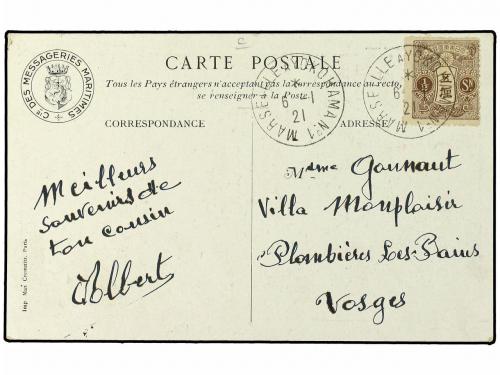 CARTE POSTALE
Tous les Pays étrangers n'acceptant pas la Correspondance au recto,
se renseigner à la Poste.
CIE DES MESSAGERIES MARITIMES
MARSEILLE A YOKOHAMA N°1
6 -1
21
MARSEILLE A YOKOHAMA N°1
6
21
½ Sn
CORRESPONDANCE
ADRESSE
Meilleurs
souvenirs de
ton cousin
Albert
Mdme Gonnaut
Villa Monplaisir
Plombières Les-Bains
Vosges
Imp. Mse Cremnitz, Paris